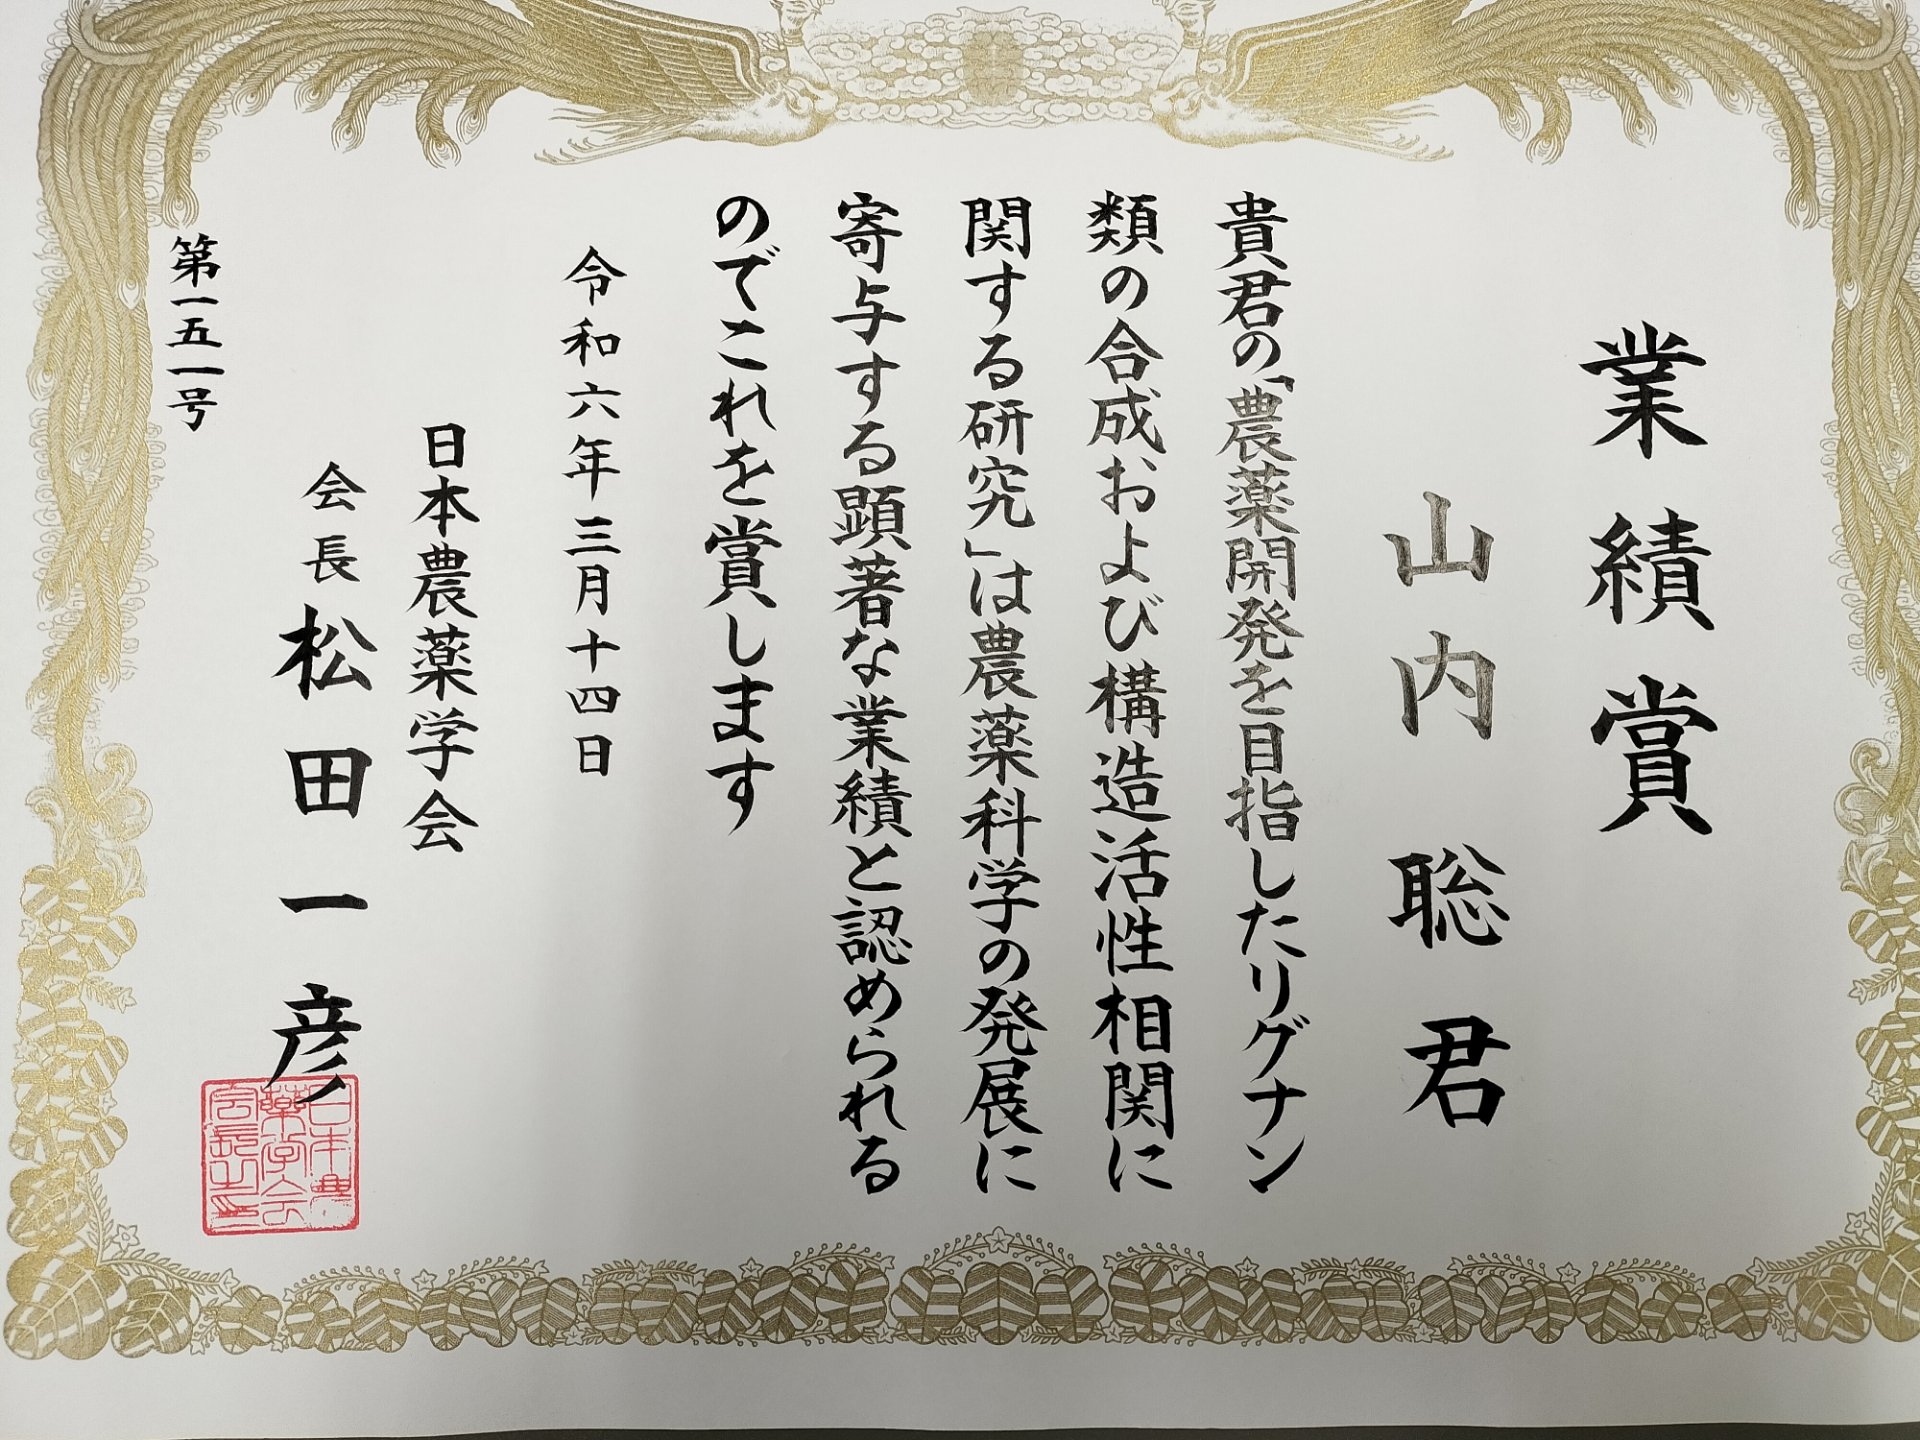 業績賞
山内 聡 君
貴君の「農薬開発を目指したリグナン
類の合成および構造活性相関に
関する研究」は農薬科学の発展に
寄与する顕著な業績と認められる
のでこれを賞します
令和六年三月十四日
日本農薬学会
会長 松田一彦
第一五一号
日本農
薬学会
会長之印